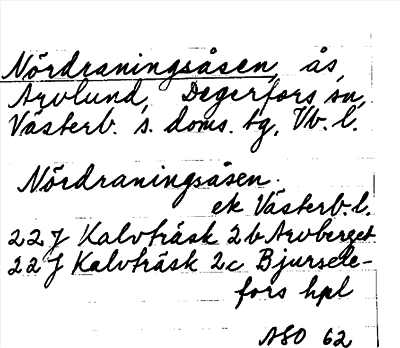 Nördraningsåsen, ås,
Arvlund, Degerfors sn,
Västerb. s. doms. tg, Vb. l.
Nördraningsåsen.
ek Västerb. l.
22 J Kalvträsk 2 b Arvberget
22 J Kalvträsk 2c Bjursele-
fors hpl
ASO 62